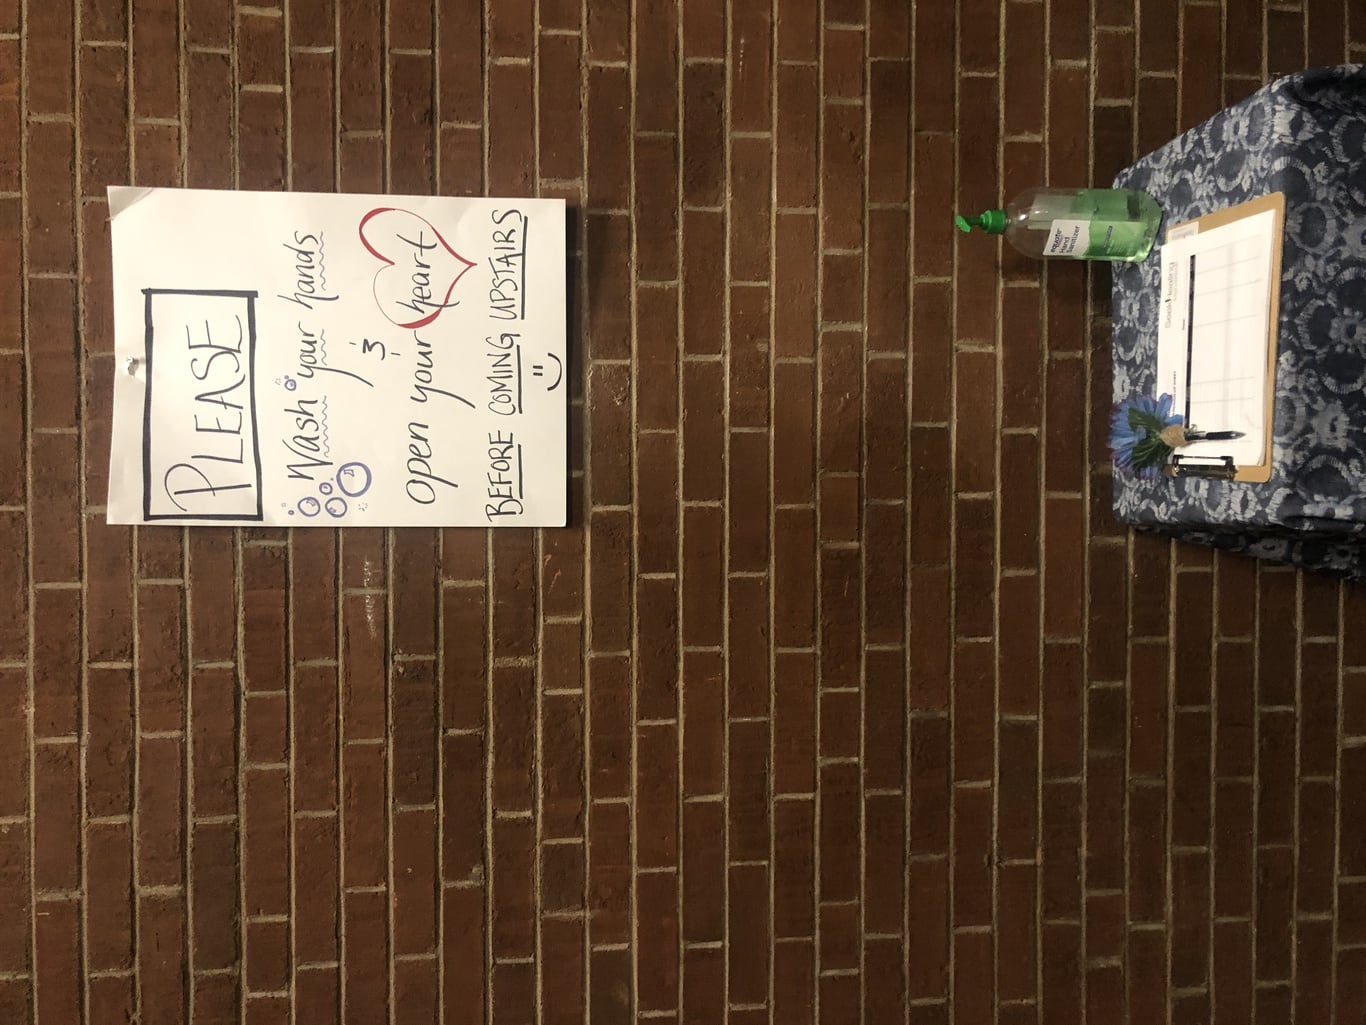 PLEASE
Wash your hands
&
open your heart
BEFORE COMING UPSTAIRS
equate
Hand
Sanitizer